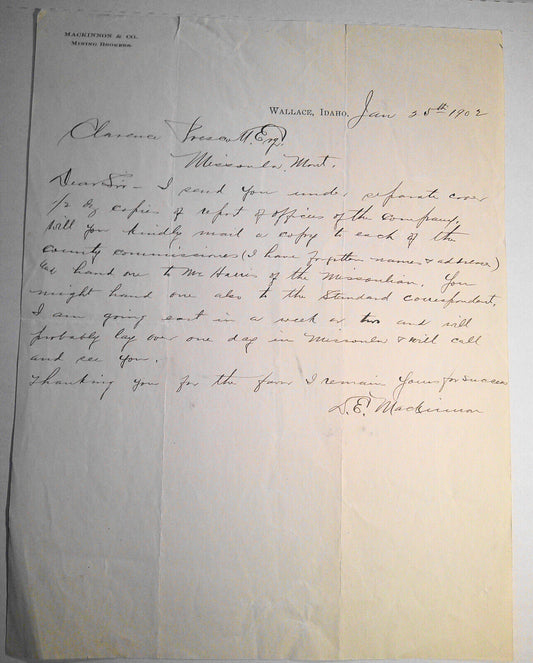 MACKINNON & CO.
MINING BROKERS.
WALLACE, IDAHO, Jan 25th 1902
Clarence Prescott, Esq.
Missoula, Mont.
Dear Sir - I send you under separate cover
1/2 dz copies of report of officers of the company,
will you kindly mail a copy to each of the
county commissioners (I have forgotten names & addresses)
hand one to Mr Harris of the Missoulian. You
might hand one also to the Standard correspondent,
I am going east in a week or two and will
probably lay over one day in Missoula & will call
and see you.
Thanking you for the favor I remain Yours for success
D. E. Mackinnon